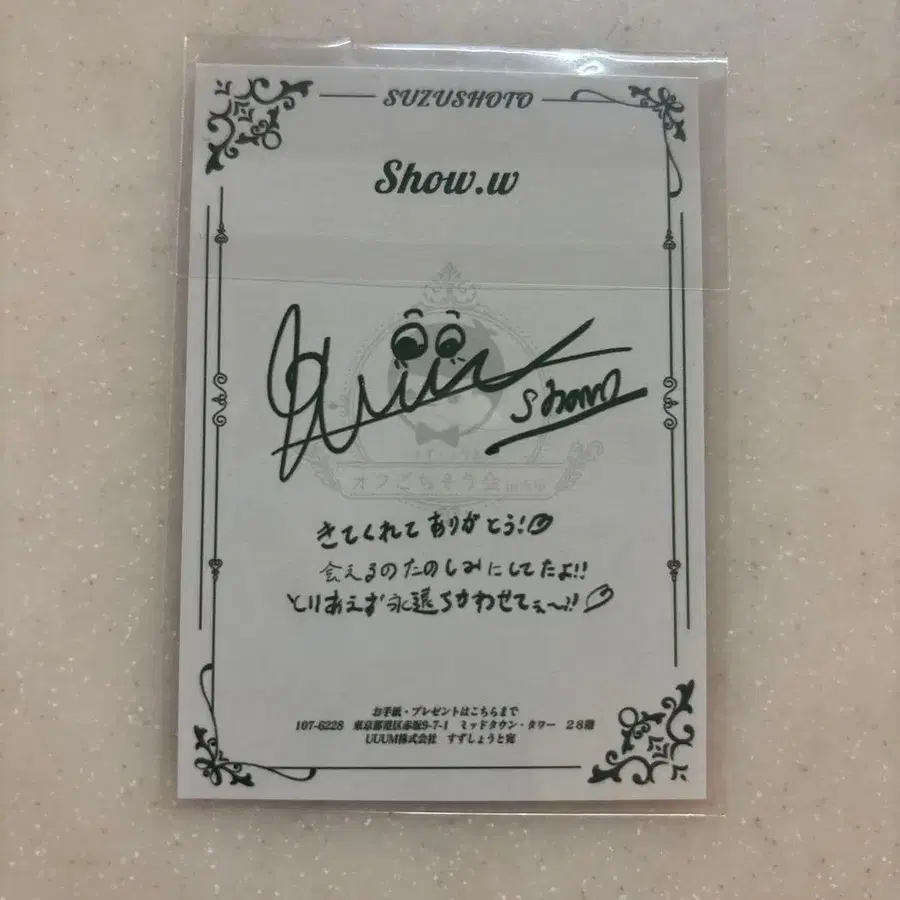 SUZUSHOTO
Show.w
Show
すずしょうと
オフごちそう会
きてくれてありがとう!
会えるのたのしみにしてたよ!!
とりあえず永遠ちかわせてぇ〜!!
お手紙・プレゼントはこちらまで
107-6228 東京都港区赤坂9-7-1 ミッドタウン・タワー 28階
UUUM株式会社 すずしょうと宛